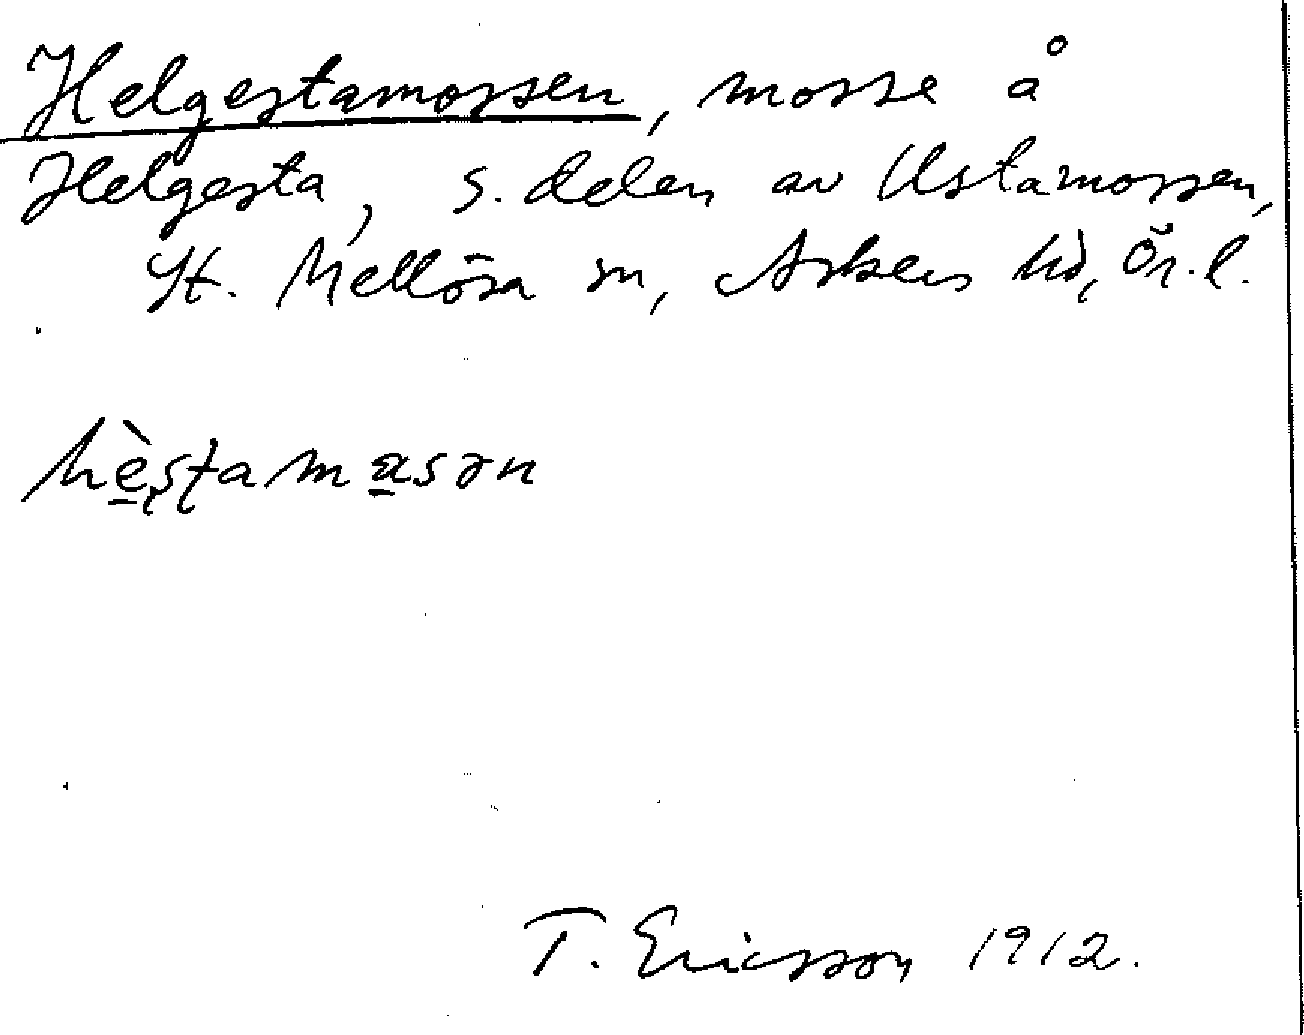 Helgestamossen, mosse å
Helgesta, s. delen av Ustamossen,
St. Mellösa sn, Askers hd, Ör. l.
hèʂʈamasən
T. Ericsson 1912.